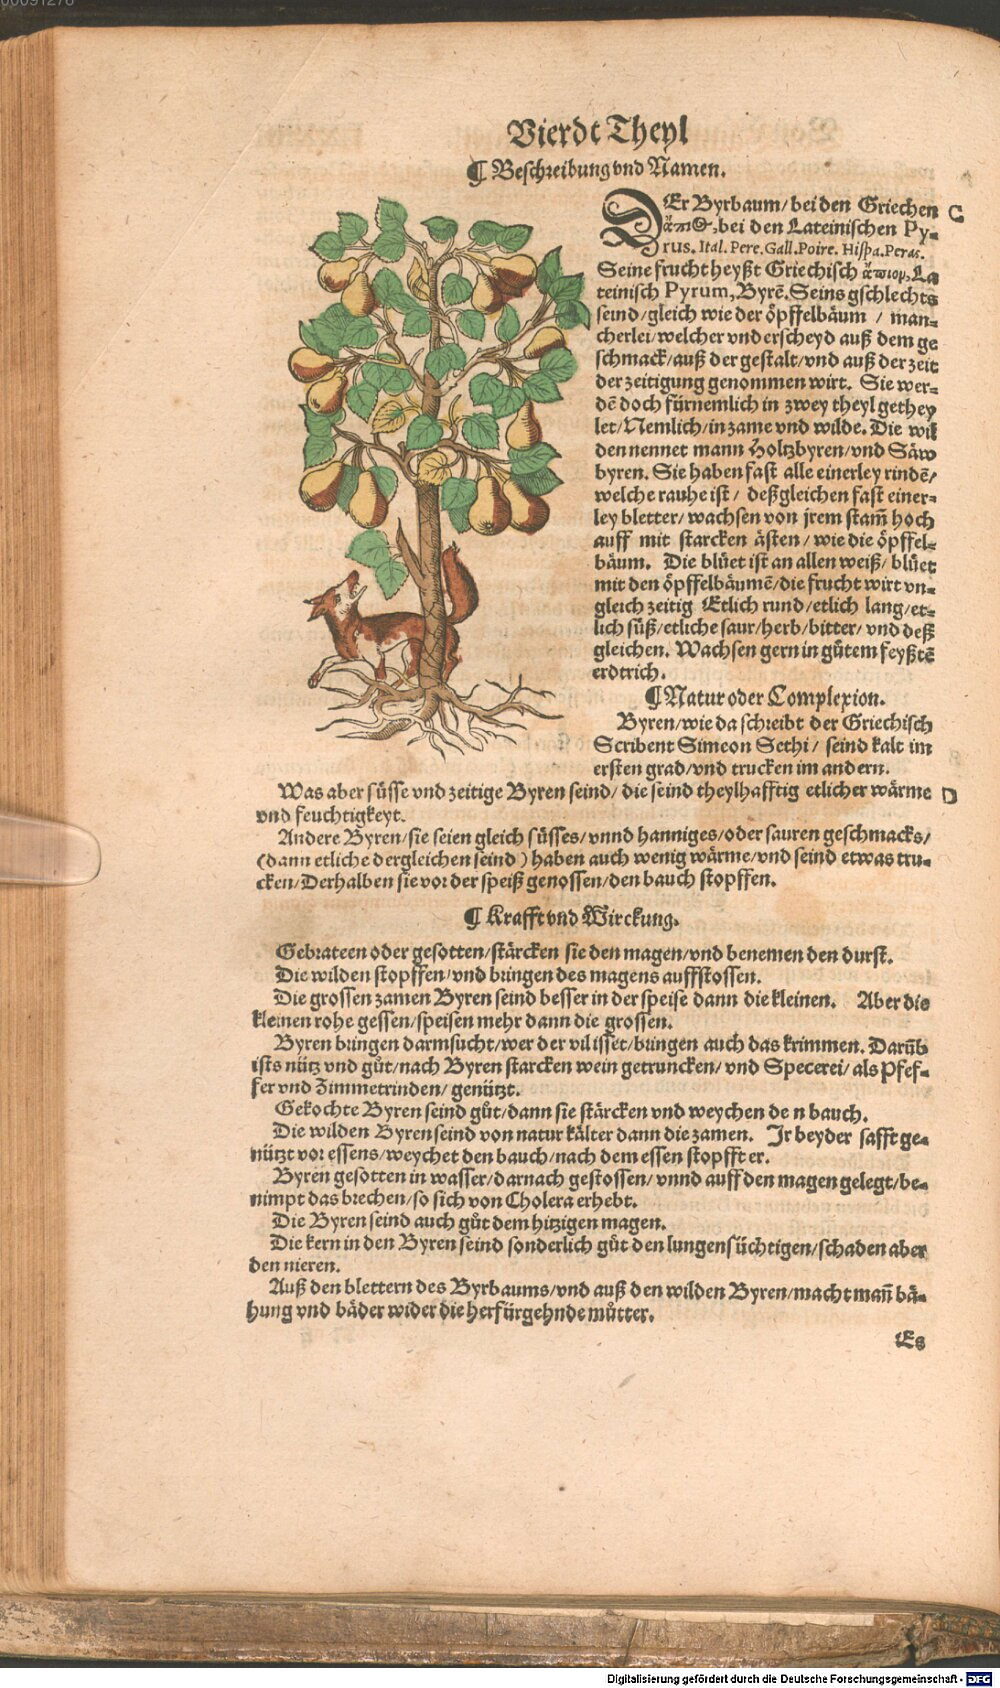 00091276
Vierdt Theyl
¶ Beschreibung vnd Namen.
DEr Byrbaum/ bei den Griechen C
ἄπιος, bei den Lateinischen Py-
rus. Ital. Pere. Gall. Poire. Hispa. Peras.
Seine frucht heyßt Griechisch ἄπιον, La
teinisch Pyrum, Byrē. Seins gschlechts
seind/ gleich wie der öpffelbäum / man-
cherlei/ welcher vnderscheyd auß dem ge
schmack/ auß der gestalt/ vnd auß der zeit
der zeitigung genommen wirt. Sie wer-
dē doch fürnemlich in zwey theyl gethey
let/ Nemlich/ in zame vnd wilde. Die wil
den nennet mann Holtzbyren/ vnd Säw
byren. Sie haben fast alle einerley rindē/
welche rauhe ist / deßgleichen fast einer-
ley bletter/ wachsen von jrem stam̄ hoch
auff mit starcken ästen / wie die öpffel-
bäum. Die blüet ist an allen weiß/ blüet
mit den öpffelbäumē/ die frucht wirt vn-
gleich zeitig Etlich rund/ etlich lang/ et-
lich süß/ etliche saur/ herb/ bitter/ vnd deß
gleichen. Wachsen gern in gůtem feyßtē
erdtrich.
¶ Natur oder Complexion.
Byren/ wie da schreibt der Griechisch
Scribent Simeon Sethi / seind kalt im
ersten grad/ vnd trucken im andern.
Was aber süsse vnd zeitige Byren seind/ die seind theylhafftig etlicher wärme D
vnd feuchtigkeyt.
Andere Byren/ sie seien gleich süsses/ vnnd hanniges/ oder sauren geschmacks/
(dann etliche dergleichen seind) haben auch wenig wärme/ vnd seind etwas tru-
cken/ Derhalben sie vor der speiß genossen/ den bauch stopffen.
¶ Krafft vnd Wirckung.
Gebrateen oder gesotten/ stärcken sie den magen/ vnd benemen den durst.
Die wilden stopffen/ vnd bringen des magens auffstossen.
Die grossen zamen Byren seind besser in der speise dann die kleinen. Aber die
kleinen rohe gessen/ speisen mehr dann die grossen.
Byren bringen darmsucht/ wer der vil isset/ bringen auch das krimmen. Darūb
ists nütz vnd gůt/ nach Byren starcken wein getruncken/ vnd Specerei/ als Pfef-
fer vnd Zimmetrinden/ genützt.
Gekochte Byren seind gůt/ dann sie stärcken vnd weychen de n bauch.
Die wilden Byren seind von natur kälter dann die zamen. Jr beyder safft ge-
nützt vor essens/ weychet den bauch/ nach dem essen stopfft er.
Byren gesotten in wasser/ darnach gestossen/ vnnd auff den magen gelegt/ be-
nimpt das brechen/ so sich von Cholera erhebt.
Die Byren seind auch gůt dem hitzigen magen.
Die kern in den Byren seind sonderlich gůt den lungensüchtigen/ schaden aber
den nieren.
Auß den blettern des Byrbaums/ vnd auß den wilden Byren/ macht mañ bä-
hung vnd bäder wider die herfürgehnde můtter.
Es
Digitalisierung gefördert durch die Deutsche Forschungsgemeinschaft - DFG